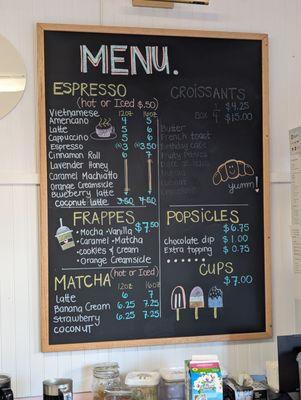 MENU.
ESPRESSO
(hot or Iced $.50)
12oz 16oz
Vietnamese
Americano 4 5
Latte 5 6
Cappuccino 5 6
Espresso
Cinnamon Roll 6 7
Lavender Honey
Caramel
Orange Creamsicle
Blueberry Latte
coconut Latte
FRAPPES
•Mocha •Vanilla $7.50
•Caramel •Matcha
•cookies & cream
•Orange Creamsicle
MATCHA (hot or Iced)
12oz 16oz
Latte 6 7
Banana Cream 6.25 7.25
Strawberry 6.25 7.25
coconut
CROISSANTS
1 $4.25
BOX 4 $15.00
Butter
French toast
Birthday cake
Fruity
yum!
POPSICLES
$6.75
chocolate dip $1.00
Extra topping $0.75
CUPS
$7.00